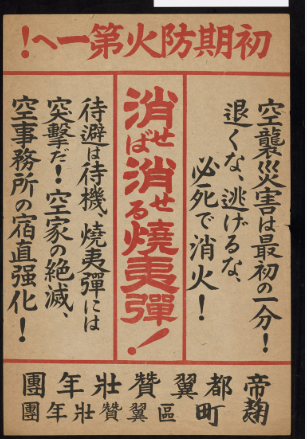 初期防火第一へ！
空襲災害は最初の一分！
退くな、逃げるな、
必死で消火！
消せば消せる燒夷彈！
待避は待機、燒夷彈には
突擊だ！空家の絶滅、
空事務所の宿直强化！
帝都翼贊壯年團
麹町區翼贊壯年團